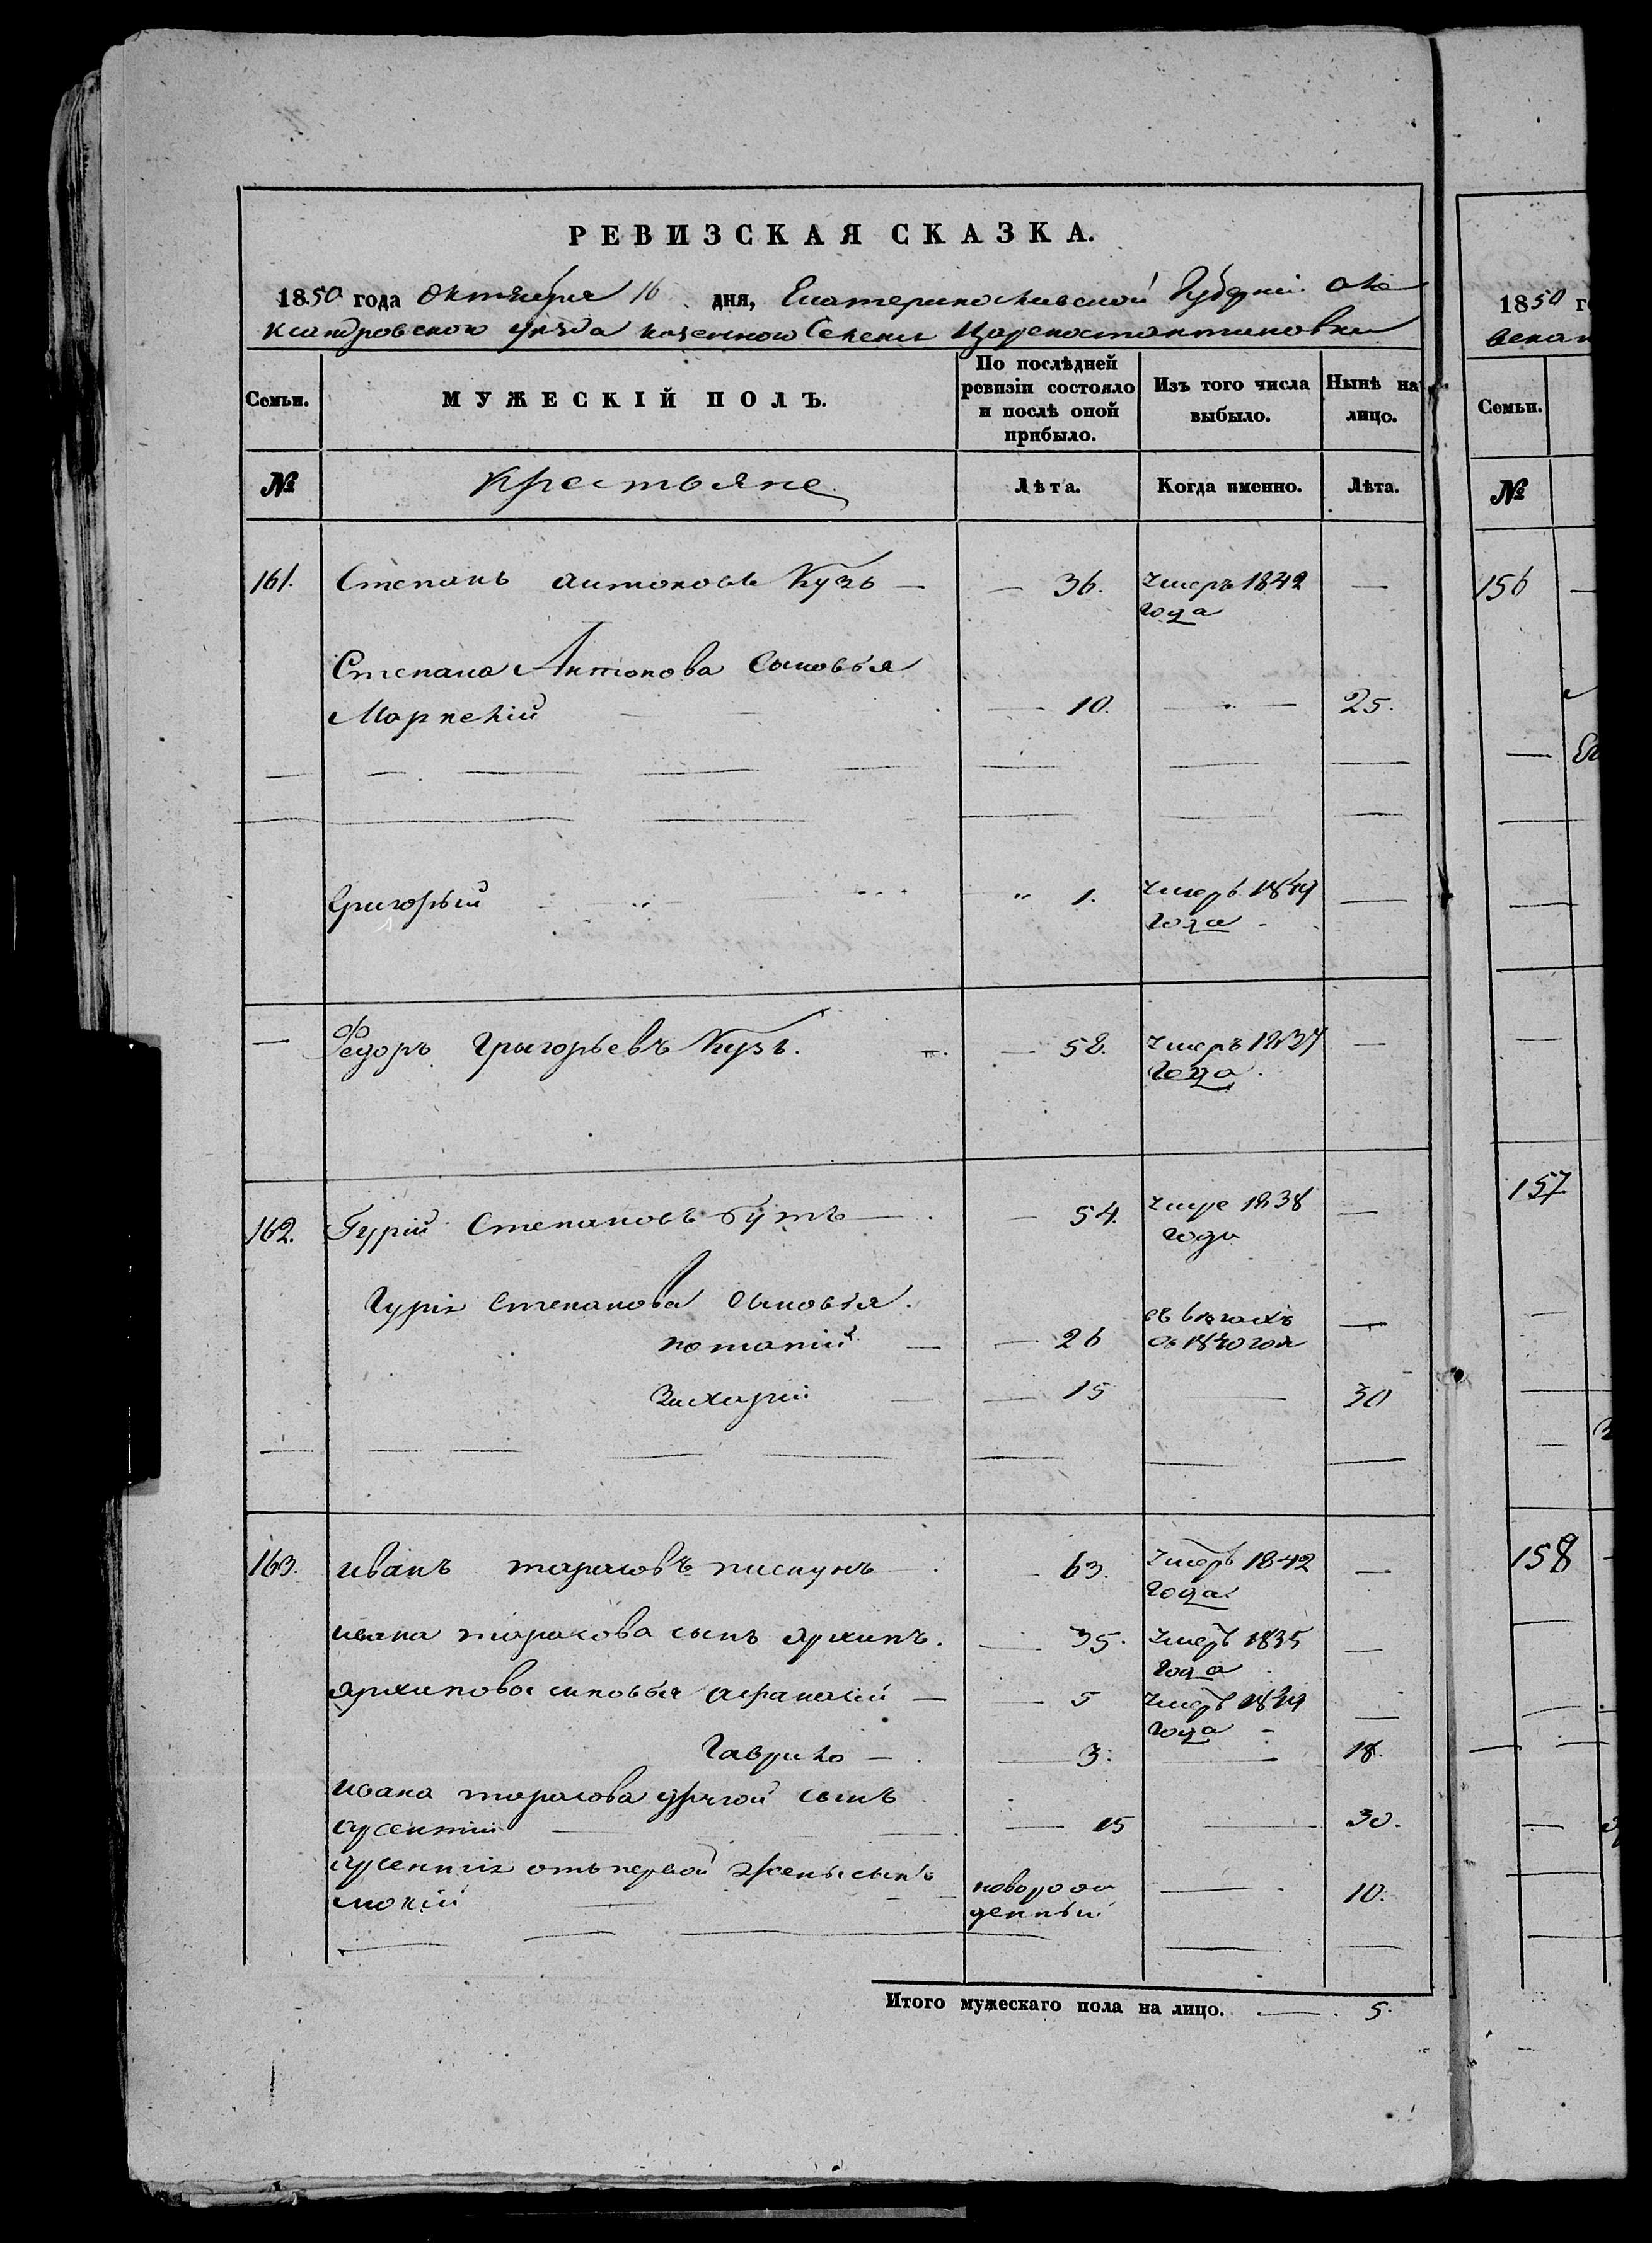 РЕВИЗСКАЯ СКАЗКА.
1850 года Октября 16 дня, Екатеринославской Губерніи Але
ксандровского уѣзда казенного Селенія Цареконстантиновки
Семьи. МУЖЕСКІЙ ПОЛЪ. По послѣдней ревизіи состояло и послѣ оной прибыло. Изъ того числа выбыло. Нынѣ на лицо.
№ крестьяне Лѣта. Когда именно. Лѣта.
161. Степанъ Антоновъ Кузь — — 36. Умеръ 1842 —
года
Степана Антонова Сыновья
Маркелій — 10. — 25.
Григорый " 1. Умеръ 1849 —
года
— Федоръ Грыгорьевъ Кузь. — 58. Умеръ 1837 —
года
162. Гурій Степановъ Бутъ — — 54. Умре 1838 —
года
Гурія Степанова Сыновья
потапій — — 26 въ бѣгахъ —
съ 1840 года
Захарій — — 15 — 30
163. иванъ тарасовъ пискунъ — 63. Умеръ 1842 —
года
ивана тарасова сынъ архипъ. — 35. Умеръ 1835 —
года
архипова сыновья афанасій — — 5 Умеръ 1849 —
года
Гаврило — — 3. — 18.
ивана тарасова другой сынъ
арсентій — — 15 — 30.
арсентія отъ первой жены сынъ
мокій — новорож — 10.
денный
Итого мужескаго пола на лицо. — 5.
1850
Семьи.
№
156
157
158